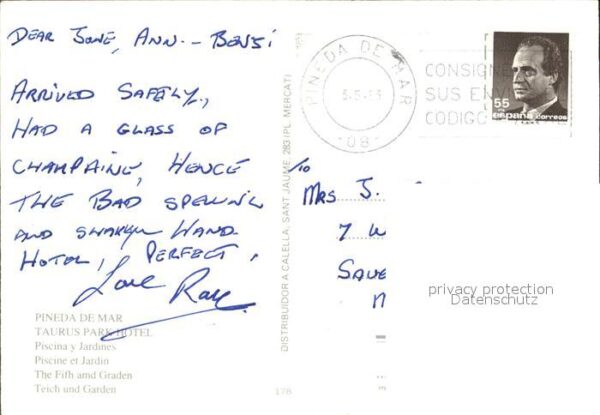 DEAR JONE, ANN. - BENSI
ARRIVED SAFELY,
HAD A GLASS OF
CHAMPAINE, HENCE
THE BAD SPELLING
AND SHAKEY HAND
HOTEL, PERFECT,
Love Ray.
PINEDA DE MAR
TAURUS PARK HOTEL
Piscina y Jardines
Piscine et Jardin
The Fifh amd Graden
Teich und Garden
178
DISTRIBUIDOR A CALELLA, SANT JAUME, 283 (PL. MERCAT)
PINEDA DE MAR
-08-
CONSIGNE
SUS ENVI
CODIGO
55
España correos
MRS J.
7 W
SAVE
privacy protection
Datenschutz